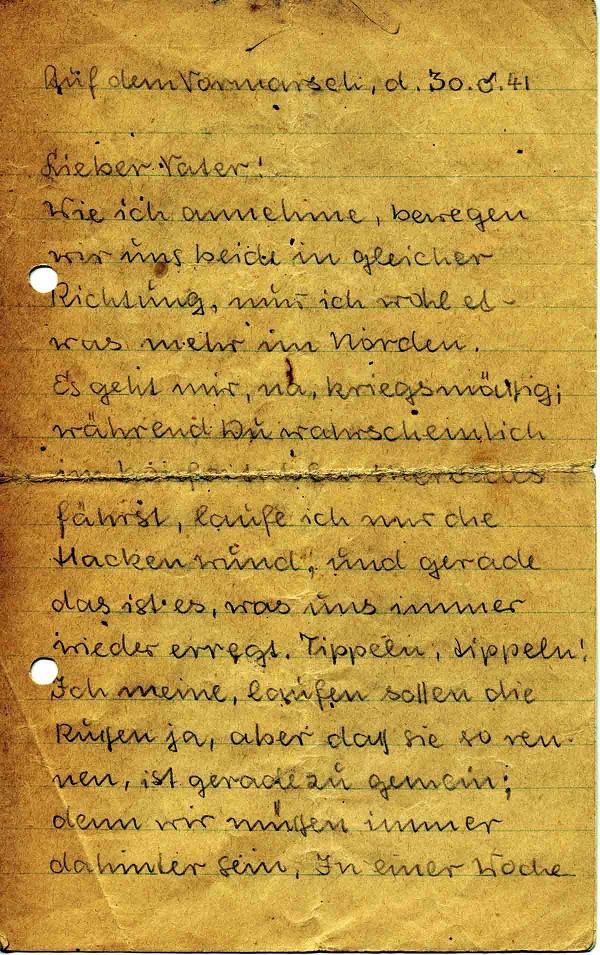 Auf dem Vormarsch, d. 30.8.41
Lieber Vater!
Wie ich annehme, bewegen
wir uns beide in gleicher
Richtung, nur ich wohl et-
was mehr im Norden.
Es geht mir, na, kriegsmäßig;
während Du wahrscheinlich
im Mercedes
fährst, laufe ich mir die
Hacken wund, und gerade
das ist es, was uns immer
wieder erregt. Tippeln, tippeln!
Ich meine, laufen sollen die
Rußen ja, aber daß sie so ren-
nen, ist geradezu gemein;
denn wir müßen immer
dahinter sein. In einer Woche